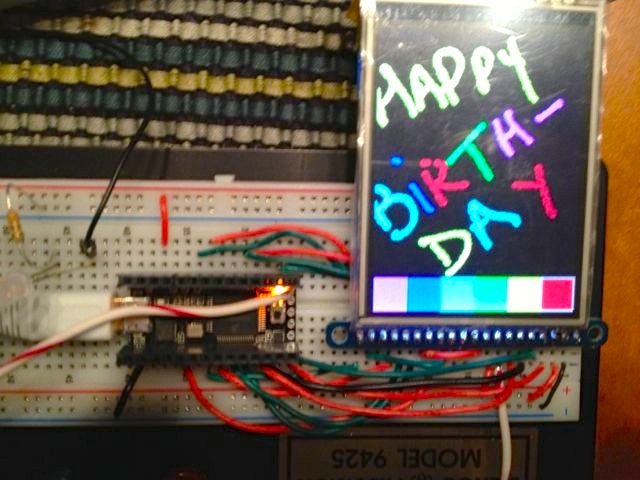 HAPPY
BIRTH-
DAY
MODEL 9425